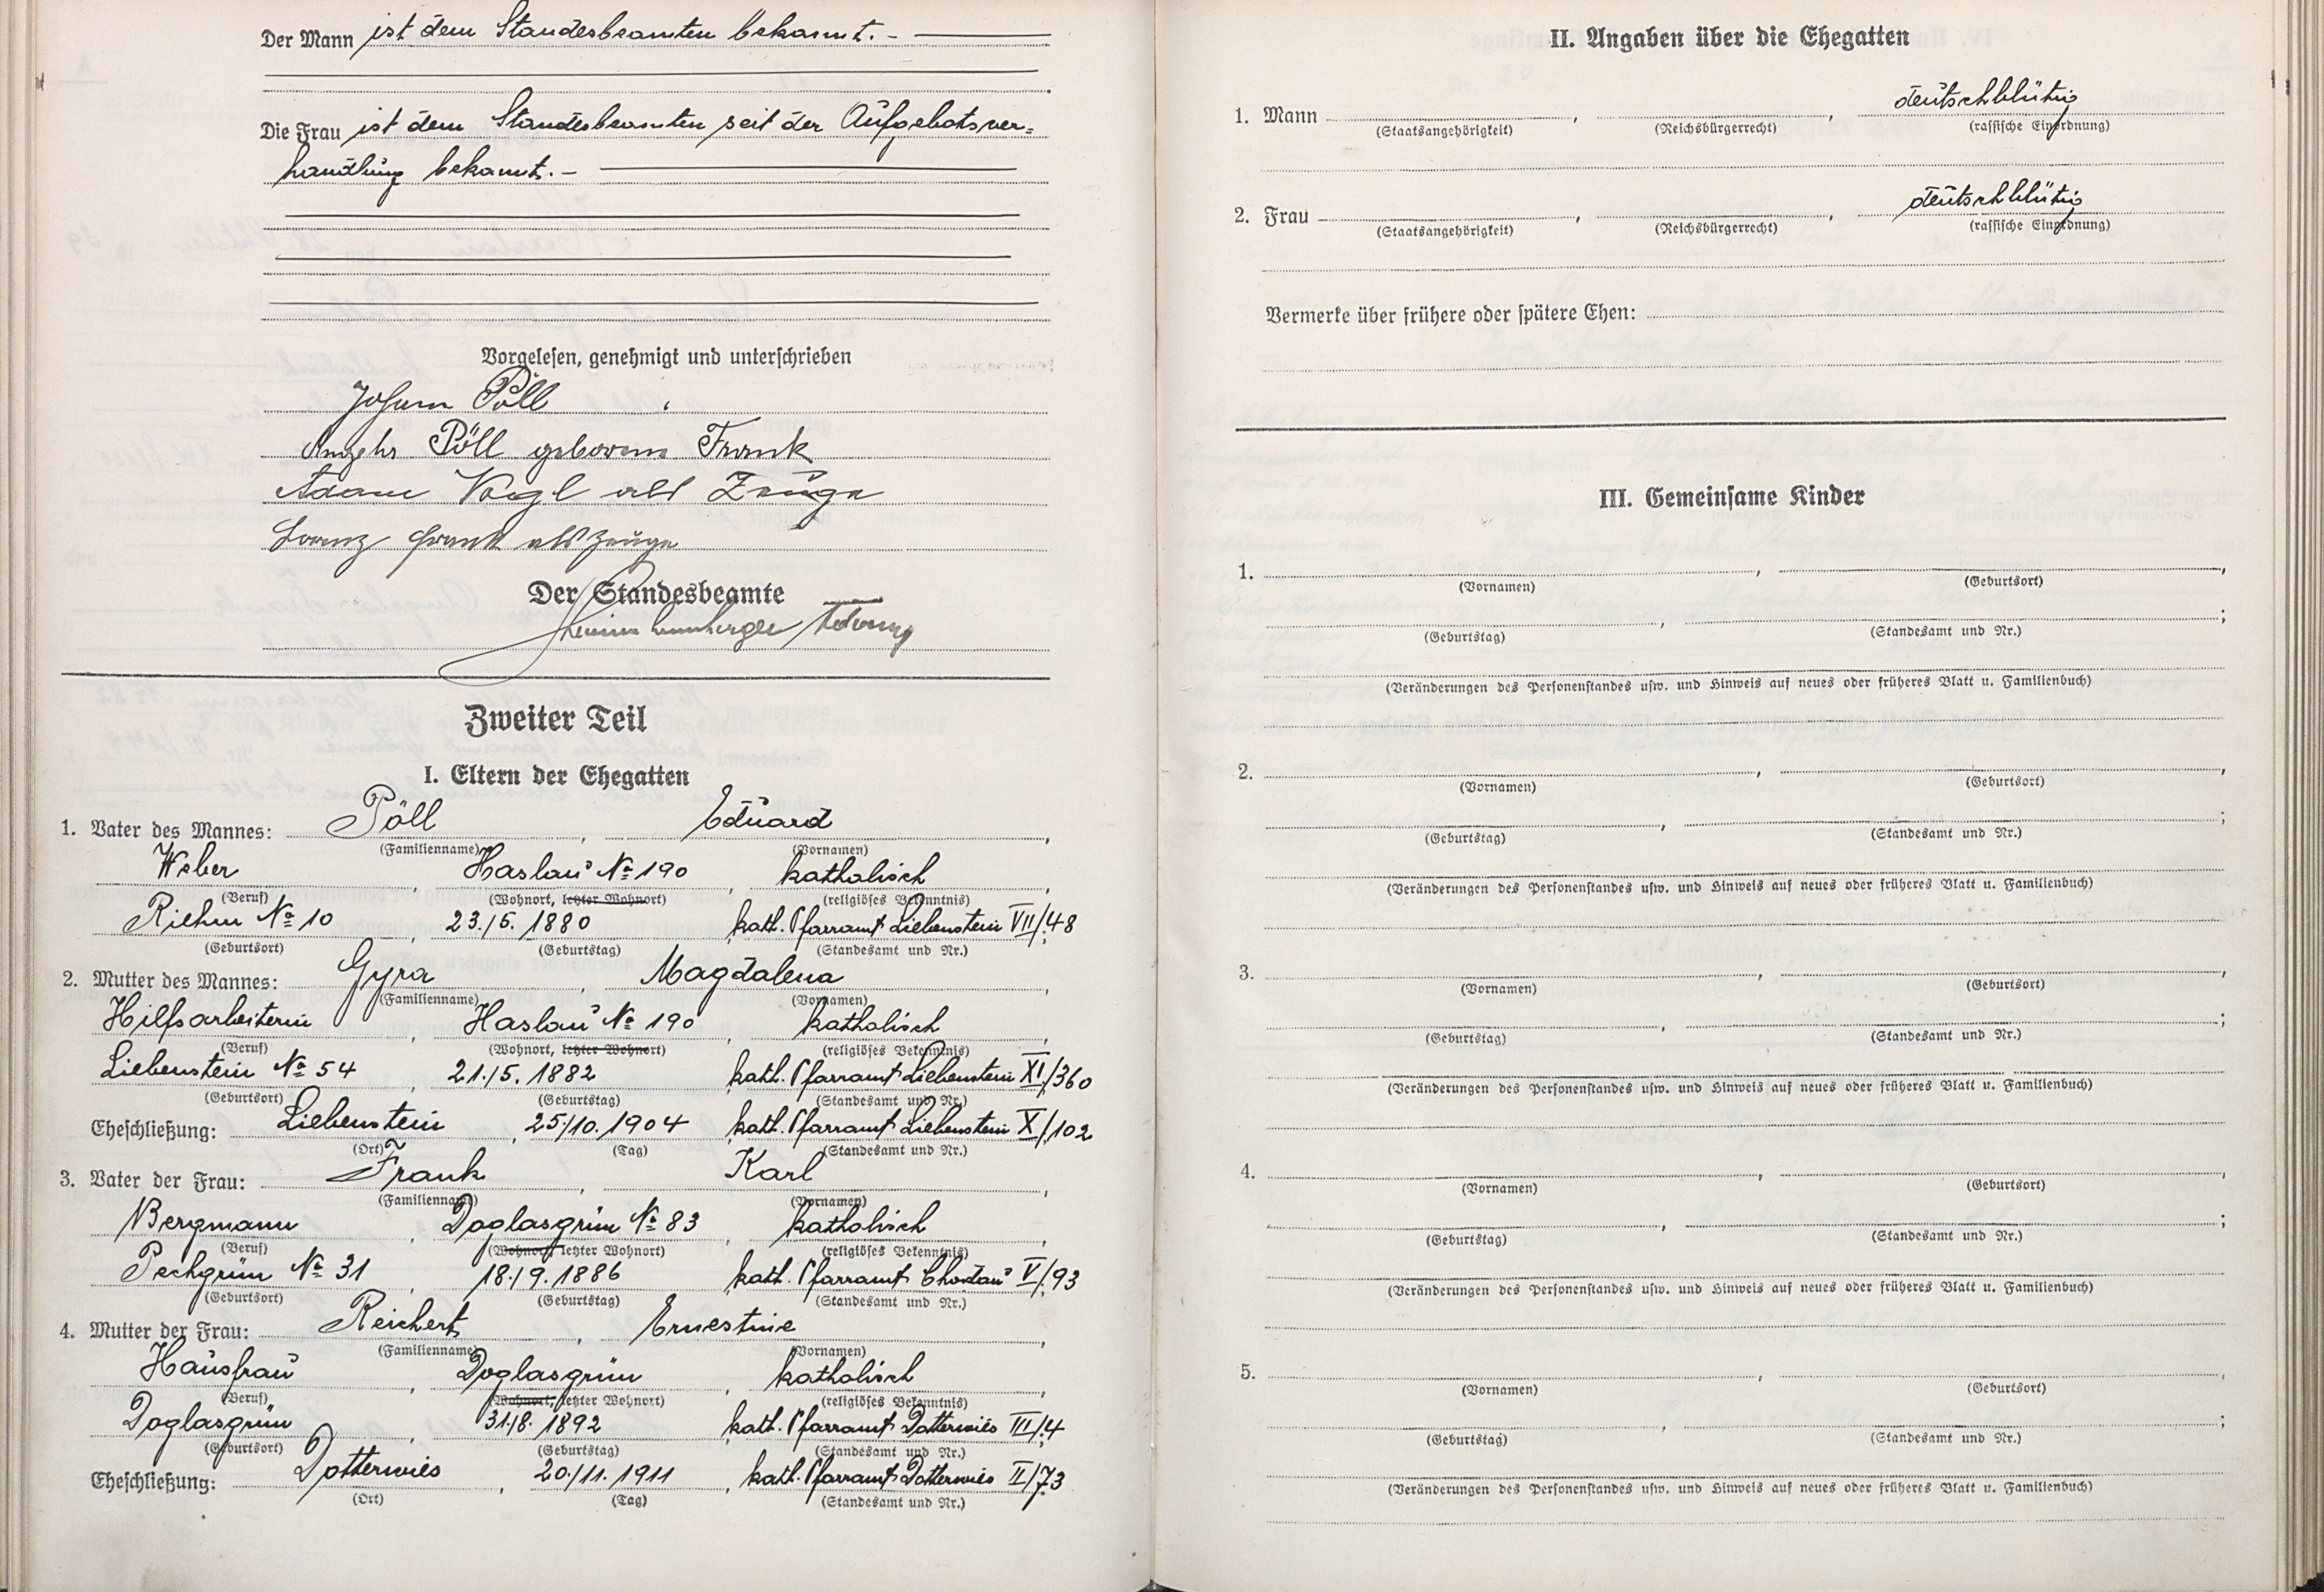 Der Mann ist dem Standesbeamten bekannt. -
Die Frau ist dem Standesbeamten seit der Aufgebotsver=
handlung bekannt. -
Vorgelesen, genehmigt und unterschrieben
Johann Pöll
Angela Pöll geborene Frank
Adam Vogl als Zeuge
Lorenz Frank als Zeuge
Der Standesbeamte
Zweiter Teil
I. Eltern der Ehegatten
1. Vater des Mannes: Pöll, Eduard,
(Familienname) (Vornamen)
Weber, Haslau No 190, katholisch,
(Beruf) (Wohnort, letzter Wohnort) (religiöses Bekenntnis)
Riehm No 10, 23./5. 1880 kath. Pfarramt Liebenstein VII/48
(Geburtsort) (Geburtstag) (Standesamt und Nr.)
2. Mutter des Mannes: Gyra, Magdalena,
(Familienname) (Vornamen)
Hilfsarbeiterin, Haslau No 190, katholisch,
(Beruf) (Wohnort, letzter Wohnort) (religiöses Bekenntnis)
Liebenstein No 54, 21./5. 1882 kath. Pfarramt Liebenstein XI/360
(Geburtsort) (Geburtstag) (Standesamt und Nr.)
Eheschließung: Liebenstein, 25./10. 1904 kath. Pfarramt Liebenstein X/102
(Ort) (Tag) (Standesamt und Nr.)
3. Vater der Frau: Frank, Karl,
(Familienname) (Vornamen)
Bergmann, Doglasgrün No 83, katholisch,
(Beruf) (Wohnort, letzter Wohnort) (religiöses Bekenntnis)
Pechgrün No 31, 18./9. 1886 kath. Pfarramt Chodau V/93
(Geburtsort) (Geburtstag) (Standesamt und Nr.)
4. Mutter der Frau: Reichert, Ernestine,
(Familienname) (Vornamen)
Hausfrau, Doglasgrün, katholisch,
(Beruf) (Wohnort, letzter Wohnort) (religiöses Bekenntnis)
Doglasgrün, 31./8. 1892 kath. Pfarramt Dotterwies III/4
(Geburtsort) (Geburtstag) (Standesamt und Nr.)
Eheschließung: Dotterwies, 20./11. 1911, kath. Pfarramt Dotterwies II/73
(Ort) (Tag) (Standesamt und Nr.)
II. Angaben über die Ehegatten
1. Mann , , deutschblütig
(Staatsangehörigkeit) (Reichsbürgerrecht) (rassische Einordnung)
2. Frau , , deutschblütig
(Staatsangehörigkeit) (Reichsbürgerrecht) (rassische Einordnung)
Vermerke über frühere oder spätere Ehen:
III. Gemeinsame Kinder
1. , ,
(Vornamen) (Geburtsort)
, ;
(Geburtstag) (Standesamt und Nr.)
(Veränderungen des Personenstandes usw. und Hinweis auf neues oder früheres Blatt u. Familienbuch)
2. , ,
(Vornamen) (Geburtsort)
, ;
(Geburtstag) (Standesamt und Nr.)
(Veränderungen des Personenstandes usw. und Hinweis auf neues oder früheres Blatt u. Familienbuch)
3. , ,
(Vornamen) (Geburtsort)
, ;
(Geburtstag) (Standesamt und Nr.)
(Veränderungen des Personenstandes usw. und Hinweis auf neues oder früheres Blatt u. Familienbuch)
4. , ,
(Vornamen) (Geburtsort)
, ;
(Geburtstag) (Standesamt und Nr.)
(Veränderungen des Personenstandes usw. und Hinweis auf neues oder früheres Blatt u. Familienbuch)
5. , ,
(Vornamen) (Geburtsort)
, ;
(Geburtstag) (Standesamt und Nr.)
(Veränderungen des Personenstandes usw. und Hinweis auf neues oder früheres Blatt u. Familienbuch)